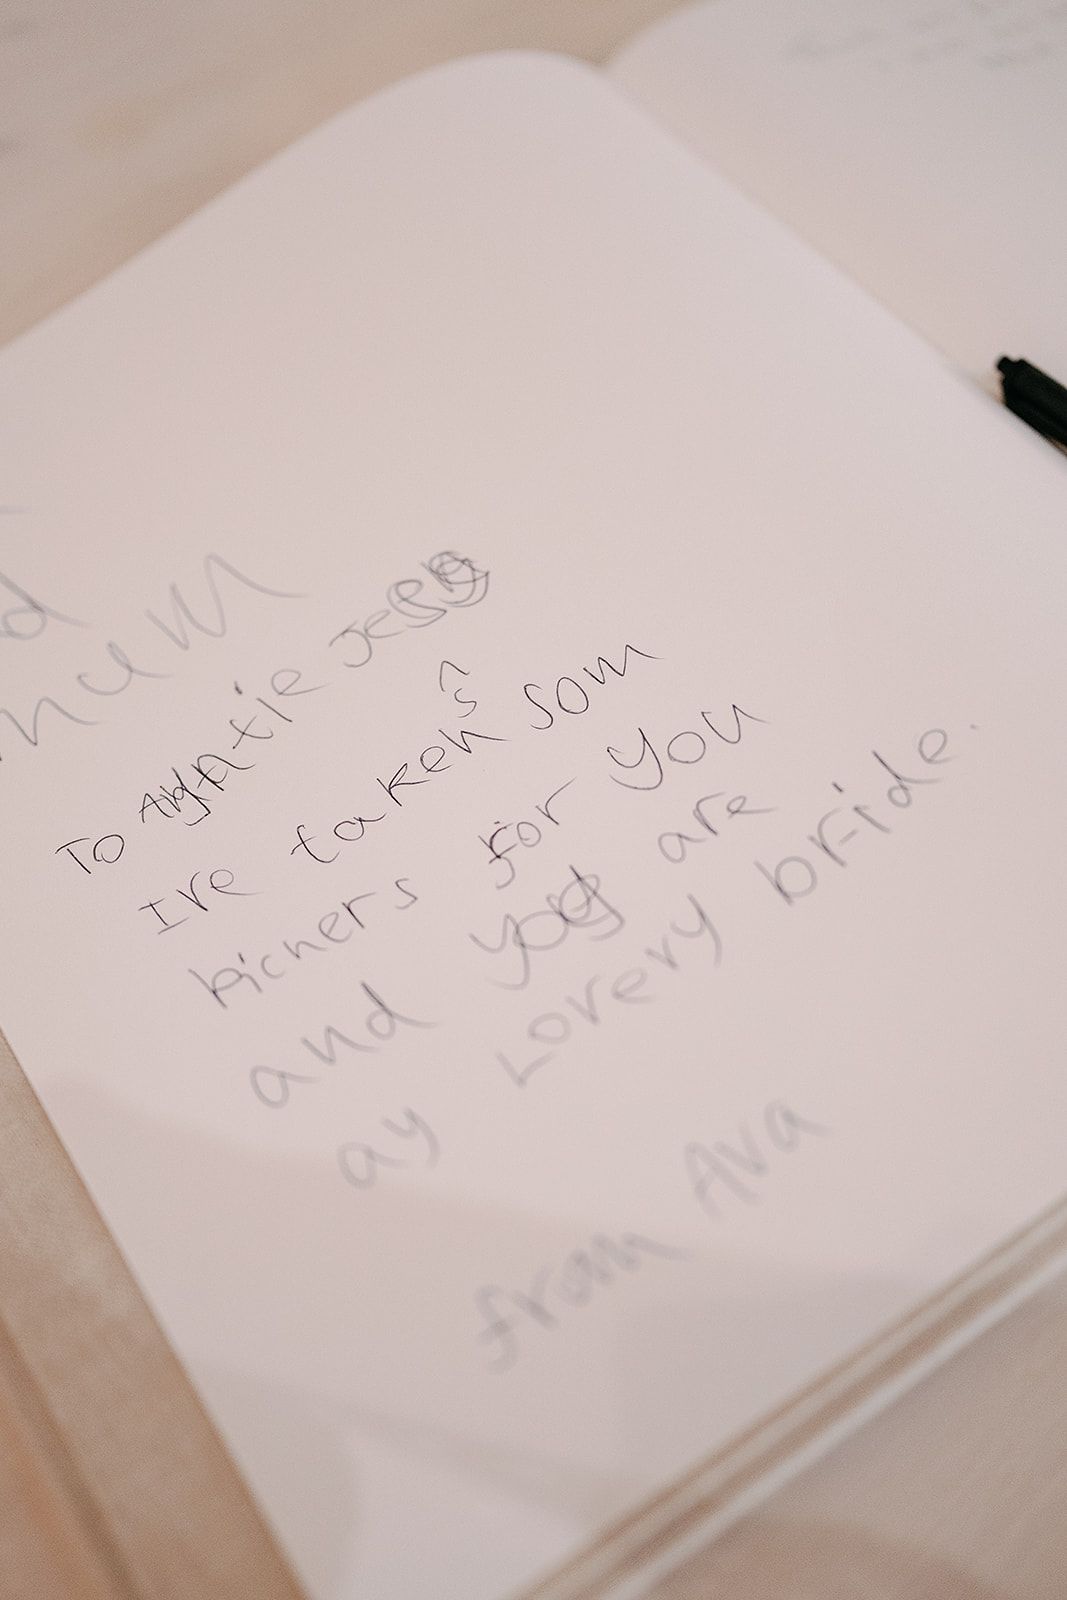 mum
To Auntie Jess
Ive taken som
s ^
picners for you
and you are
ay Lovely bride.
from Ava